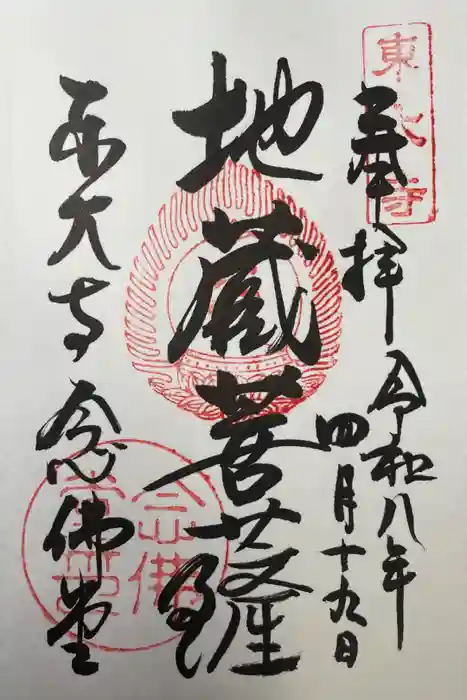 奉拝
令和八年
四月十九日
地蔵菩薩
東大寺 念佛堂
東大寺
念佛